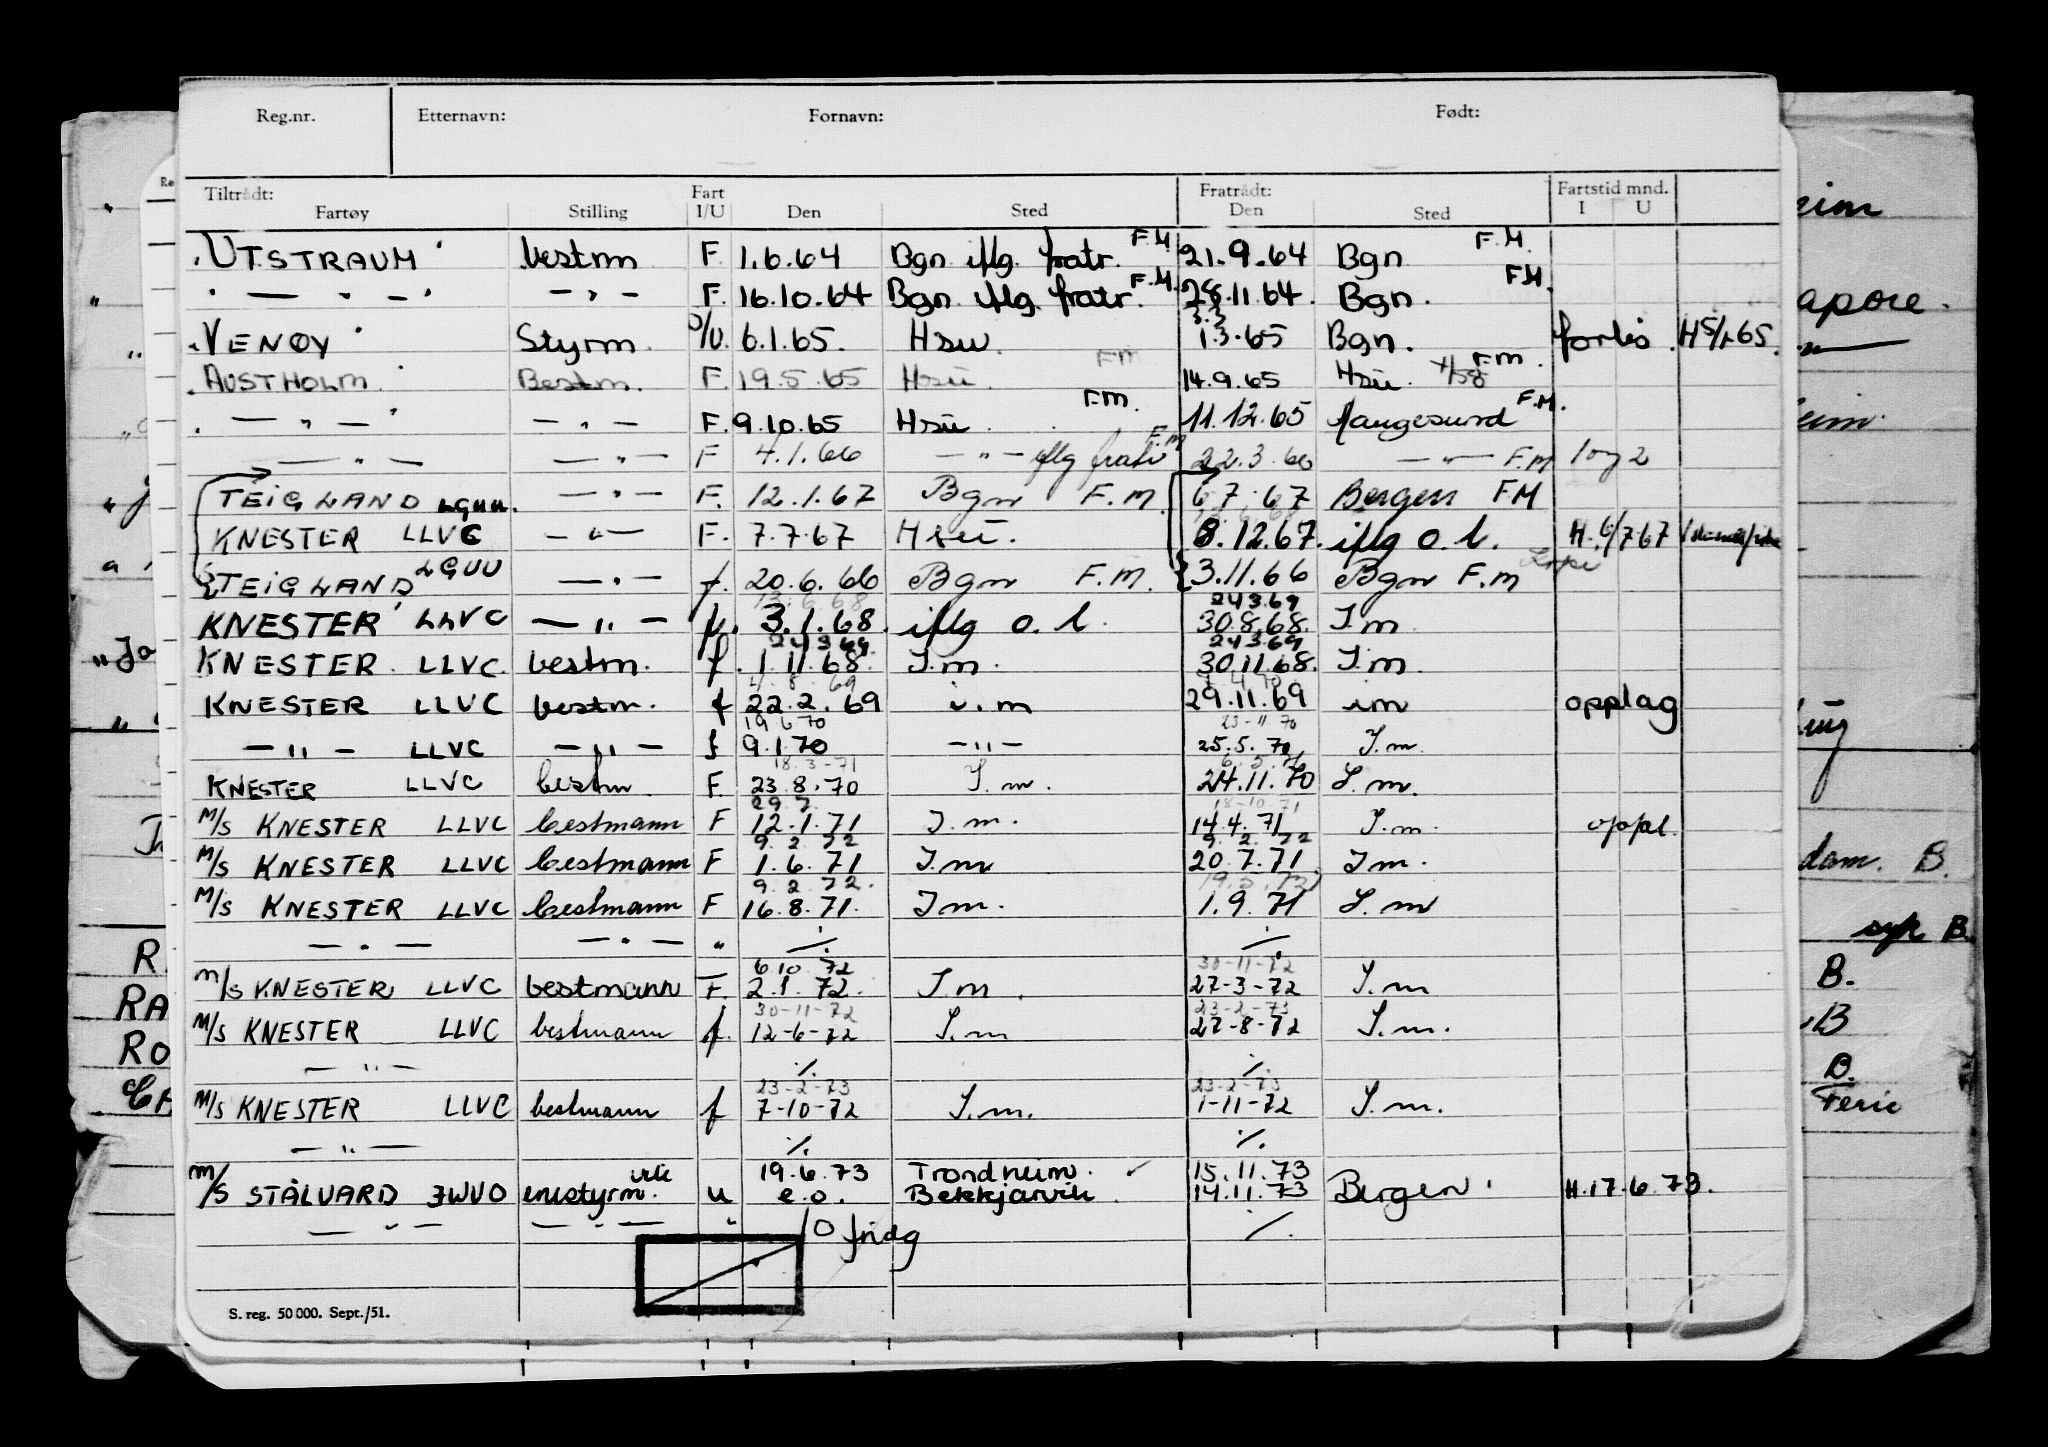 Reg.nr. Etternavn: Fornavn: Født:
Tiltrådt: Fart Fratrådt: Fartstid mnd.
Fartøy Stilling I/U Den Sted Den Sted I U
UTSTRAUM bestm F. 1.6.64 Bgn iflg. fratr. F.M. 21.9.64 Bgn F.M.
— " — — " — F. 16.10.64 Bgn iflg. fratr. F.M. 28.11.64. Bgn. F.M.
3.3
VENØY Styrm. 6.1.65. Hsu 1.3.65 Bgn. H 5/1 65.
AUSTHOLM Bestm. F. 19.5.65 Hsu. FM 14.9.65 Hsu. F.M.
— " — — " — F. 9.10.65 Hsu F.M. 11.12.65 Haugesund F.M.
— " — — " — F 4.1.66 — " — iflg fratr F.M 22.3.66 — " — F.M 1 og 2
TEIGLAND LGUU. — " — F. 12.1.67 Bgn F.M. 6 7.67 Bergen FM
KNESTER LLVC — " — F. 7.7.67 Hsu. 8.12.67. iflg o.l. H. 6/7 67
TEIGLAND LGUU — " — f. 20.6.66 Bgn F.M. 3.11.66 Bgn F.M
13.6.68 24 3.69
KNESTER LLVC — " — f. 3.1.68. iflg o.l. 30.8.68. I.m
24 3 69. 24 3.69
KNESTER LLVC. bestm. f. 1.11.68. I.m. 30.11.68. I.m
4.8.69
KNESTER LLVC bestm. f 22.2.69 i.m 29.11.69 im opplag
19 6 70 23-11 70
— " — LLVC — " — f 9.1.70 — " — 25.5.70 I.m.
18.3-71
KNESTER LLVC bestm F. 23.8.70 I.m. 24.11.70 I.m.
29.7. 18-10.71
M/S KNESTER LLVC bestmann F 12.1.71 I.m. 14.4.71 I.m. oppl.
9.2.72 9.2.72
M/S KNESTER LLVC bestmann F 1.6.71 I.m 20.7.71 I.m.
9.2.72.
M/S KNESTER LLVC bestmann F 16.8.71. I.m. 1.9.71 I.m
— " — — " — " ·/. ·/.
6.10.72 30-11-72
M/S KNESTER LLVC bestmann F. 2.1.72. I.m. 27-3-72 I.m
30-11-72 23-2-73
M/S KNESTER LLVC bestmann f. 12-6-72 I.m 27-8-72 I.m.
— " — ·/. ·/.
23-2-73 23-2-73
M/S KNESTER LLVC bestmann f 7-10-72 I.m. 1-11-72 I.m.
— " — ·/. ·/.
19.6.73 Trondheim. 15.11.73
M/S STÅLVARD JWVO enestyrm. u e.o. Bekkjarvik 14.11.73 Bergen. H.17.6.73.
— " — — " — " 10 fridg ·/.
S. reg. 50 000. Sept./51.
apore.
dam. B.
syk B.
R
B.
RA
B
RO
B.
Ferie